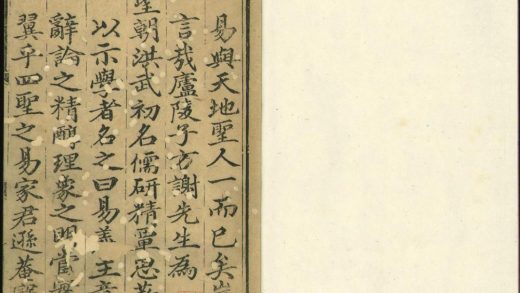 易與天地聖人一而已矣
言哉廬陵子方謝先生為
聖朝洪武初名儒研精覃思
以示學者名之曰易義主意
辭論之精醇理象之明當
翼乎四聖之易家君遜菴